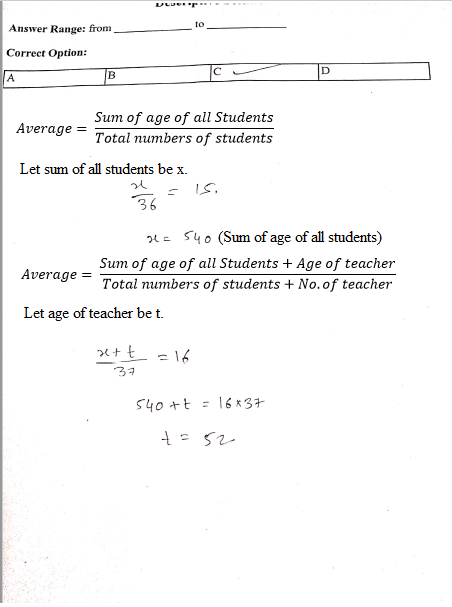 Answer Range: from ____________ to ____________
Correct Option:
A B C ✓ D
Average = Sum of age of all Students / Total numbers of students
Let sum of all students be x.
x/36 = 15.
x = 540 (Sum of age of all students)
Average = Sum of age of all Students + Age of teacher / Total numbers of students + No. of teacher
Let age of teacher be t.
x + t / 37 = 16
540 + t = 16 × 37
t = 52